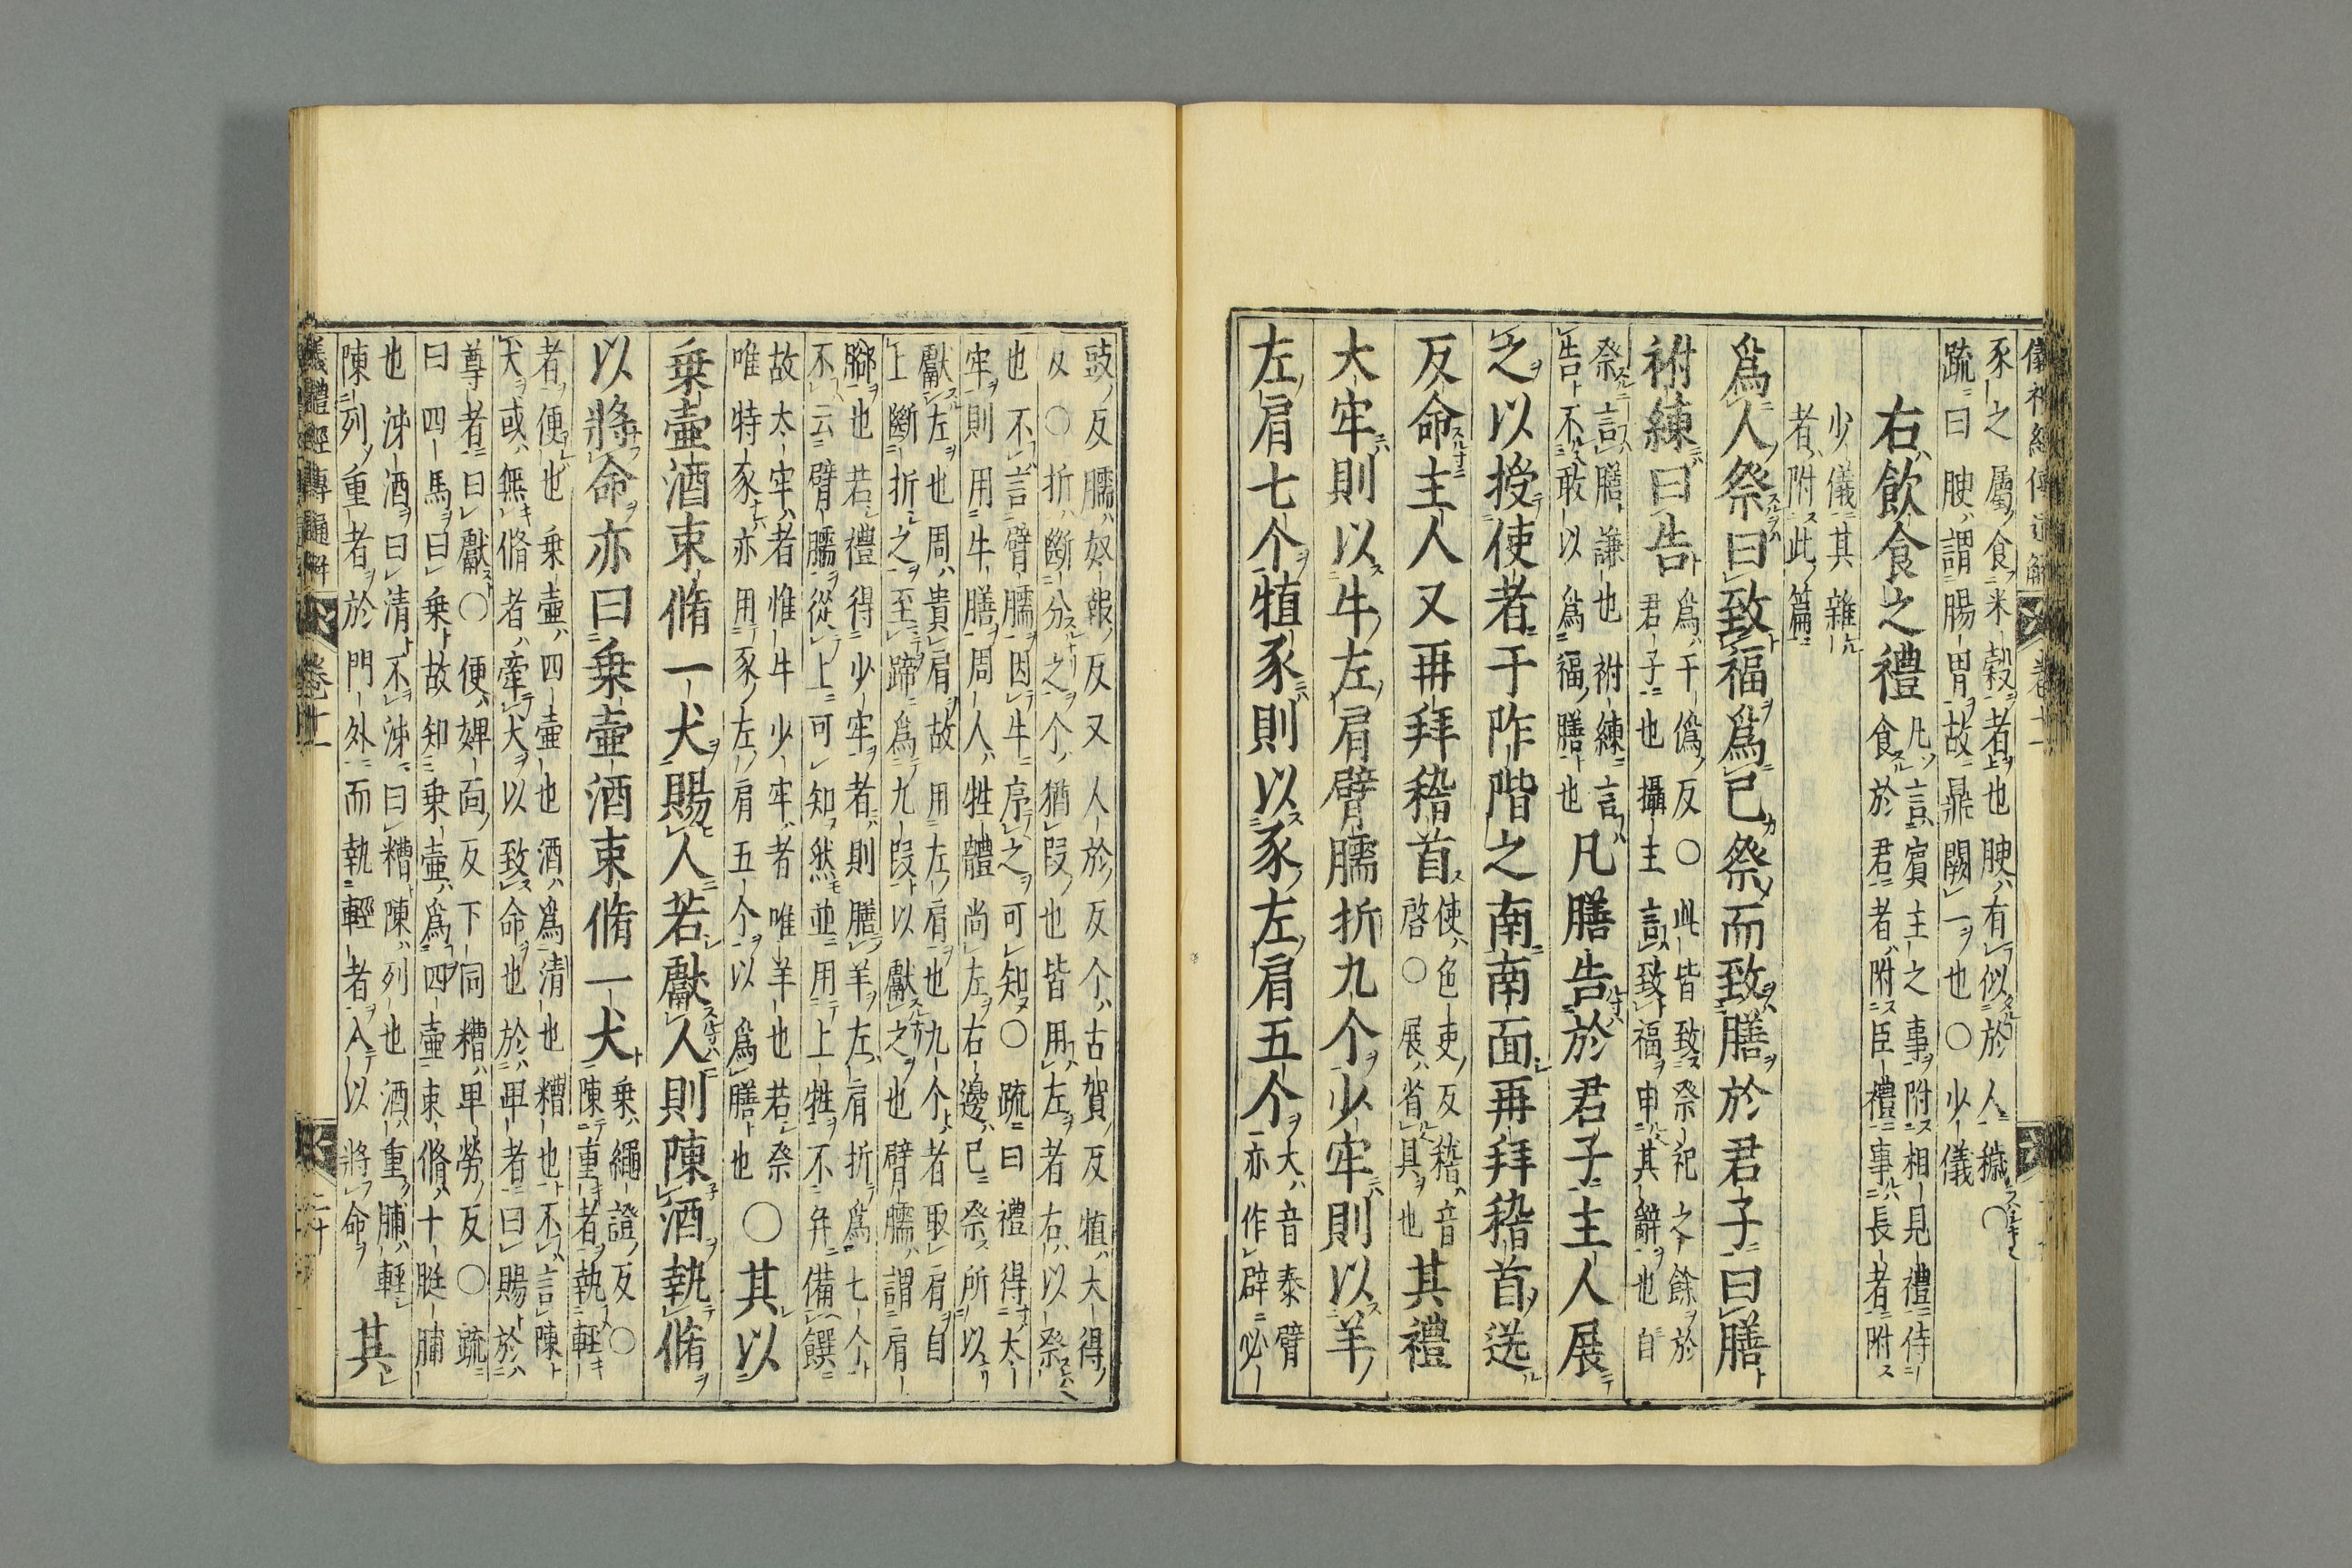 豕之屬食米穀者也腴有似於人穢〇
疏曰腴謂腸胃故鼎闕一也〇少儀
右飲食之禮
凡言賓主之事附相見禮侍
食於君者附臣禮事長者附
少儀其雜
者附此篇
爲人祭曰致福爲己祭而致膳於君子曰膳
祔練曰告
爲于僞反〇此皆致祭祀之餘於
君子也攝主言致福申其辭也自
祭言膳謙也祔練言
告不敢以爲福膳也
凡膳告於君子主人展
之以授使者于阼階之南南面再拜稽首送
反命主人又再拜稽首
使色吏反稽音
啓〇展省具也
其禮
大牢則以牛左肩臂臑折九个少牢則以羊
左肩七个犆豕則以豕左肩五个
大音泰臂
亦作辟必
豉反臑奴報反又人於反个古賀反犆大得
反〇折斷分之个猶段也皆用左者右以祭
也不言臂臑因牛序之可知〇疏曰禮得太
牢則用牛膳周人牲體尚左右邊已祭所以
獻左也周貴肩故用左肩也九个者取肩自
上斷折之至蹄爲九段以獻之也臂臑謂肩
腳也若禮得少牢者則膳羊左肩折爲七个
不云臂臑從上可知然並用上牲不并備饌
故太牢者惟牛少牢者唯羊也若祭
唯特豕亦用豕左肩五个以爲膳也
〇其以
乗壺酒束脩一犬賜人若獻人則陳酒執脩
以將命亦曰乗壺酒束脩一犬
乗繩證反〇
陳重者執輕
者便也乗壺四壺也酒爲清也糟也不言陳
犬或無脩者牽犬以致命也於卑者曰賜於
尊者曰獻〇便婢面反下同糟卑勞反〇疏
曰四馬曰乗故知乗壺爲四壺束脩十脡脯
也泲酒曰清不泲曰糟陳列也酒重脯輕
陳列重者於門外而執輕者入以將命
其
儀禮經傳通解
卷十一
二十